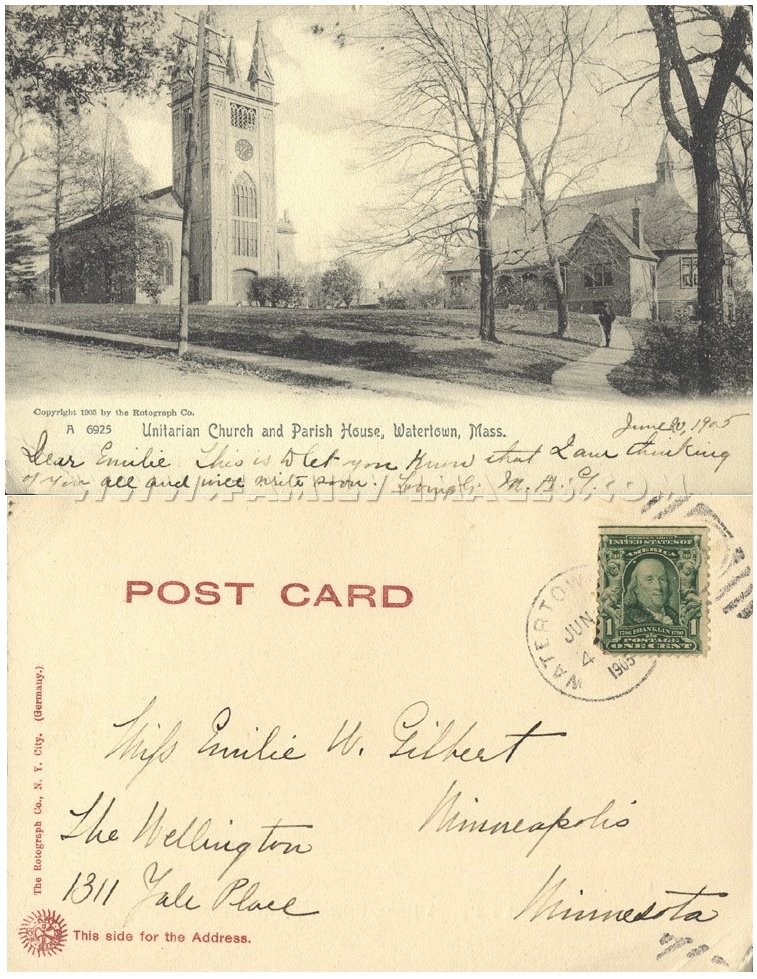 Copyright 1905 by the Rotograph Co.
A 6925 Unitarian Church and Parish House, Watertown, Mass.
June 1905
Dear Emilie. This is to let you know that I am thinking
of you all and will write soon. M. A. G.
WWW.FAMILY-IMAGES.COM
POST CARD
WATERTOW
JUN
4
1905
SERIES 1902
UNITED STATES OF
AMERICA
1 1706 FRANKLIN 1790 1
POSTAGE
ONE CENT
Miss Emilie W. Gilbert
The Wellington Minneapolis
1311 Yale Place Minnesota
The Rotograph Co., N. Y. City. (Germany.)
This side for the Address.